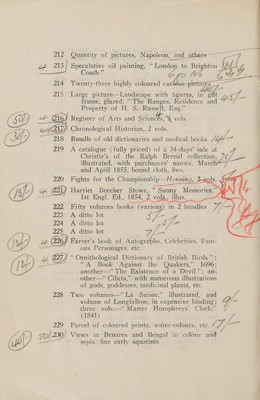 212 Quantity of pictures, Napoleon, and others
4 213 Speculative oil painting, "London to Brighton
Coach"
214 Twenty-three highly coloured curious pictures
215 Large picture—Landscape with figures, in gilt
frame, glazed. "The Ranges, Residence and
Property of H. S. Russell, Esq." 45/-
50/- 4 216 Register of Arts and Sciences, 4 vols.
30/- 217 Chronological Historian, 2 vols.
218 Bundle of old dictionaries and medical books 14/-
219 A catalogue (fully priced) of a 34-days' sale at
Christie's of the Ralph Bernal collection,
illustrated, with purchasers' names, March
and April 1855, bound cloth, 8vo.
220 Fights for the Championship—Henning, 2 vols.
15/- 4 221 Harriet Beecher Stowe, "Sunny Memories,"
1st Engl. Ed., 1854, 2 vols., illus.
222 Fifty volumes books (various) in 2 bundles 7/-
223 A ditto lot 5/-
224 A ditto lot
225 A ditto lot 5/-
12/- 4 226 Farrer's book of Autographs, Celebrities, Fam-
ous Personages, etc.
12/- 4 227 "Ornithological Dictionary of British Birds":
"A Book Against the Quakers," 1696;
another—"The Existence of a Devil"; an-
other—"Cilicia," with numerous illustrations
of gods, goddesses, medicinal plants, etc.
228 Two volumes—"La Suisse," illustrated, and
volume of Longfellow, in expensive binding;
three vols.—"Master Humphreys' Clock." 9/-
(1841)
229 Parcel of coloured prints, water-colours, etc. 17/-
40/- 50/- 230 Views in Benares and Bengal in colour and
sepia, fine early aquatints